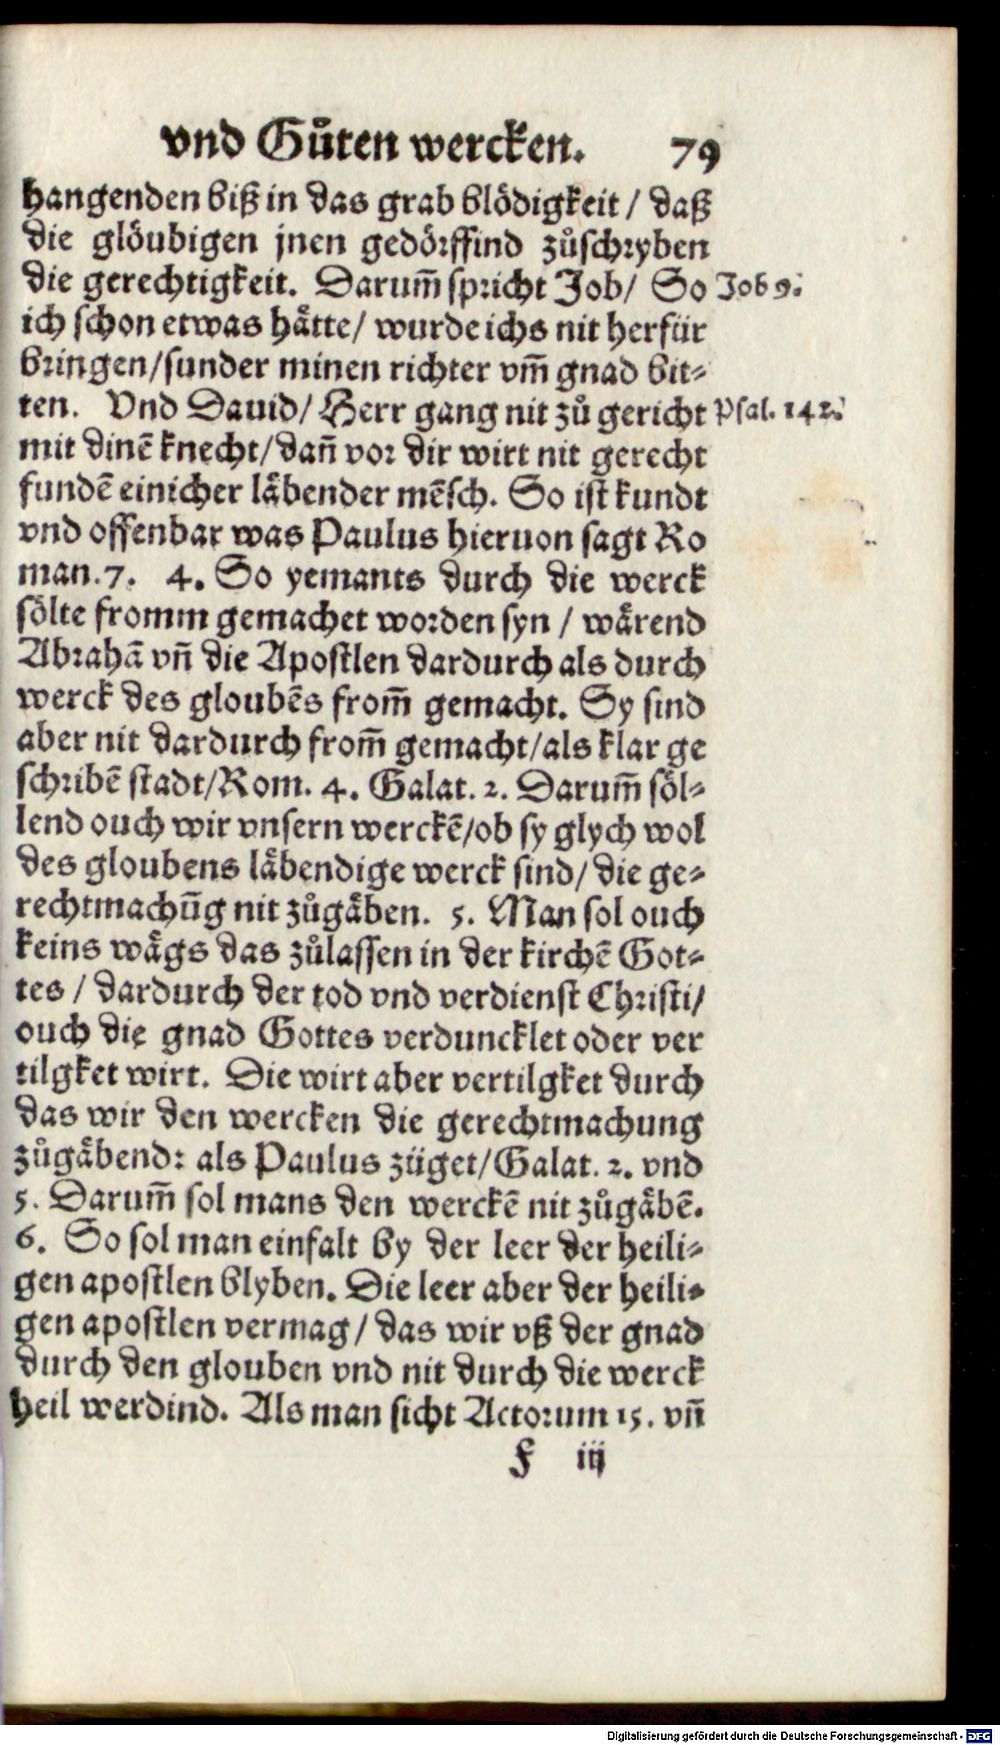 vnd Gůten wercken. 79
hangenden biß in das grab blödigkeit / daß
die glöubigen jnen gedörffind zůschryben
die gerechtigkeit. Darum̃ spricht Job/ So Job 9.
ich schon etwas hätte/ wurde ichs nit herfür
bringen/sunder minen richter vm̃ gnad bit⸗
ten. Vnd Dauid/ Herr gang nit zů gericht Psal. 142.
mit dinẽ knecht/dañ vor dir wirt nit gerecht
fundẽ einicher läbender mẽsch. So ist kundt
vnd offenbar was Paulus hieruon sagt Ro
man.7. 4. So yemants durch die werck
sölte fromm gemachet worden syn / wärend
Abrahã vñ die Apostlen dardurch als durch
werck des gloubẽs from̃ gemacht. Sy sind
aber nit dardurch from̃ gemacht/als klar ge
schribẽ stadt/Rom. 4. Galat. 2. Darum̃ söl⸗
lend ouch wir vnsern werckẽ/ob sy glych wol
des gloubens läbendige werck sind/ die ge⸗
rechtmachũg nit zůgäben. 5. Man sol ouch
keins wägs das zůlassen in der kirchẽ Got⸗
tes / dardurch der tod vnd verdienst Christi/
ouch die gnad Gottes verduncklet oder ver
tilgket wirt. Die wirt aber vertilgket durch
das wir den wercken die gerechtmachung
zůgäbend: als Paulus züget/Galat. 2. vnd
5. Darum̃ sol mans den werckẽ nit zůgäbẽ.
6. So sol man einfalt by der leer der heili⸗
gen apostlen blyben. Die leer aber der heili⸗
gen apostlen vermag / das wir vß der gnad
durch den glouben vnd nit durch die werck
heil werdind. Als man sicht Actorum 15. vñ
f iij
Digitalisierung gefördert durch die Deutsche Forschungsgemeinschaft - DFG